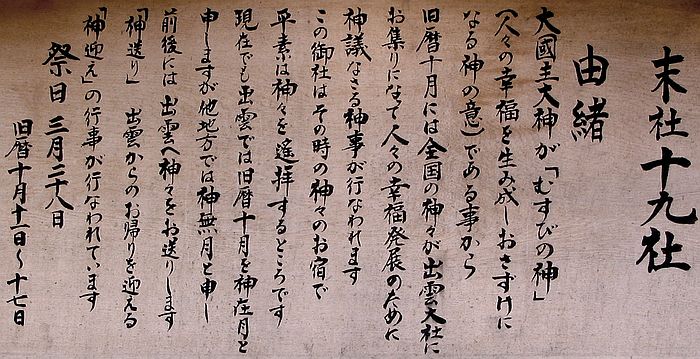 末社十九社
由緒
大國主大神が「むすびの神」
(人々の幸福を生み成しおさずけに
なる神の意)である事から
旧暦十月には全国の神々が出雲大社に
お集りになって人々の幸福発展のために
神議なさる神事が行なわれます
この御社はその時の神々のお宿で
平素は神々を遙拝するところです
現在でも出雲では旧暦十月を神在月と
申しますが他地方では神無月と申し
前後には出雲へ神々をお送りします
「神送り」出雲からのお帰りを迎える
「神迎え」の行事が行なわれています
祭日 三月二十八日
旧暦十月十一日〜十七日